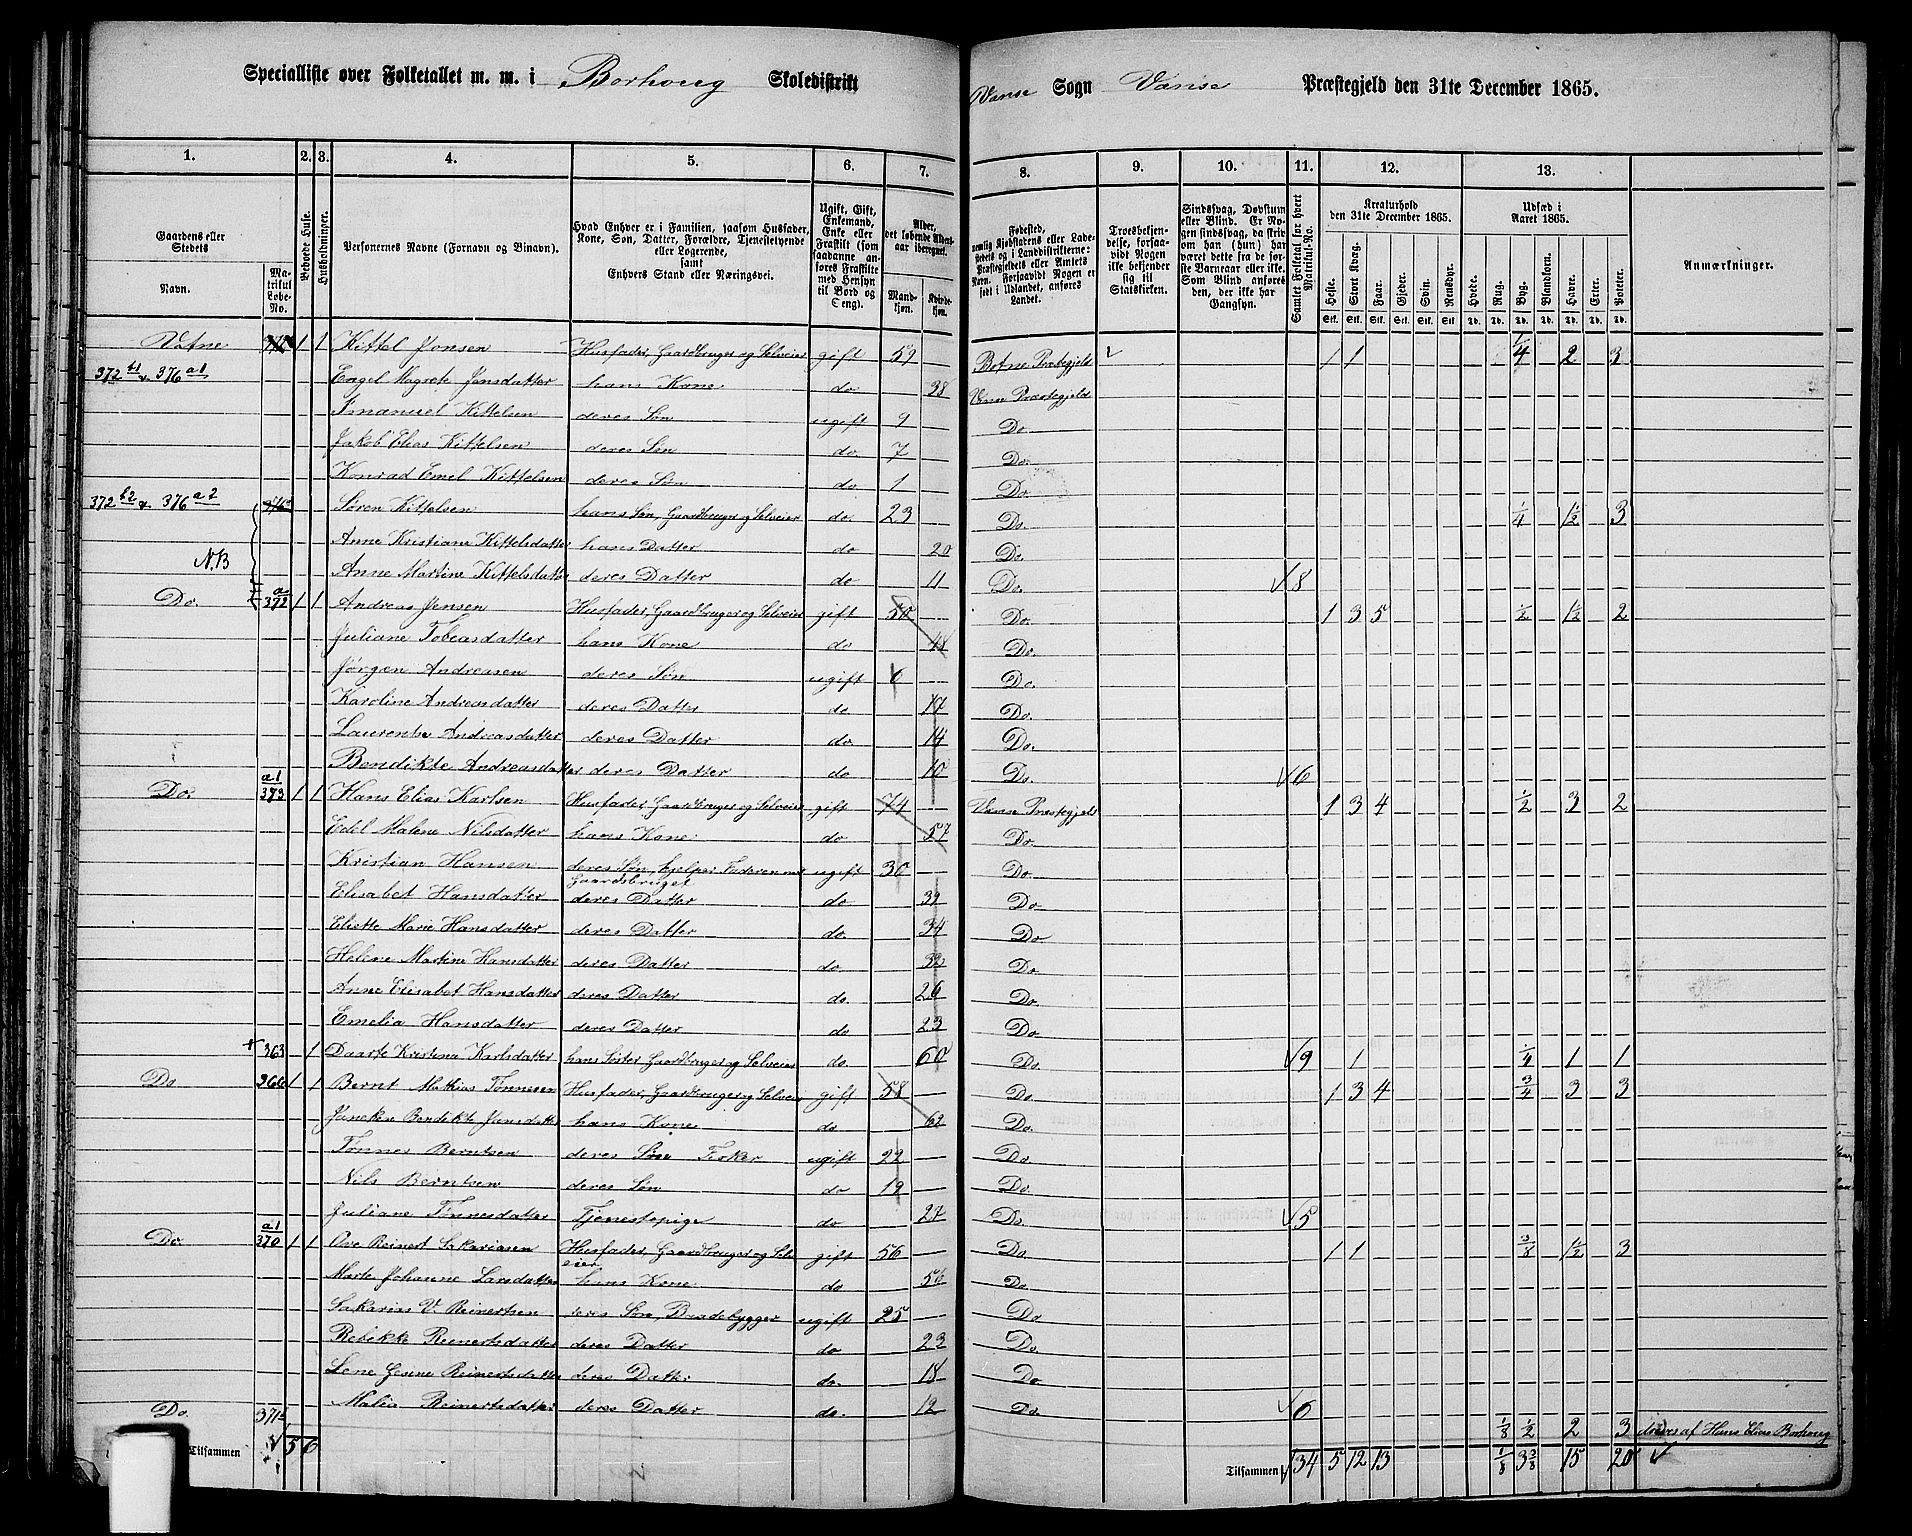 Specialliste over Folketallet m. m. i Borhoug Skoledistrikt Vanse Sogn Vanse Præstegjeld den 31te December 1865.
1. 2. 3. 4. 5. 6. 7. 8. 9. 10. 11. 12. 13.
Gaardens eller Stedets
Navn.
Matrikul Løbe-No.
Beboede Huse.
Husholdninger.
Personernes Navne (Fornavn og Binavn).
Hvad Enhver er i Familien, saasom Husfader, Kone, Søn, Datter, Forældre, Tjenestetyende eller Logerende, samt Enhvers Stand eller Næringsvei.
Ugift, Gift, Enkemand, Enke eller Fraskilt (som saadanne anføres Fraskilte med Hensyn til Bord og Seng).
Alder, det løbende Aldersaar iberegnet.
Mandkjøn. Kvindekjøn.
Fødested, nemlig Kjøbstadens eller Ladestedets eller i Landdistrikterne: Præstegjeldets eller Amtets Navn. Forsaavidt Nogen er født i Udlandet, anføres Landet.
Troesbekjendelse, forsaavidt Nogen ikke bekjender sig til Statskirken.
Sindssvag, Døvstum eller Blind. Er Nogen sindssvag, da skriv om han (hun) har været dette fra de første Barneaar eller ikke. Som Blind anføres den, der ikke har Gangsyn.
Samlet Folketal for hvert Matrikul-No.
Kreaturhold den 31te December 1865.
Heste. Stort Kvæg. Faar. Gjeder. Svin. Rensdyr.
Udsæd i Aaret 1865.
Hvede. Rug. Byg. Blandkorn. Havre. Erter. Poteter.
Anmærkninger.
Vatne 1 1 Kittel Jonsen Husfader, Gaardbruger og Selveier gift 59 Botne Præstegjeld 1 1 1/4 2 3
372 b1 & 376 a1 Engel Magrete Jensdatter hans Kone do 38 Vanse Præstegjeld
Emanuel Kittelsen deres Søn ugift 9 Do.
Jakob Elias Kittelsen deres Søn do 7 Do.
Konrad Emel Kittelsen deres Søn do 1 Do.
372 b2 & 376 a2 Søren Kittelsen hans Søn, Gaardbruger og Selveier do. 23 Do. 1/4 1 1/2 3
Anne Kristiane Kittelsdatter hans Datter do 20 Do.
N.B Anne Martine Kittelsdatter deres Datter do 11 Do. √8
Do. 372 a 1 1 Andreas Jensen Husfader, Gaardbruger og Selveier gift 50 Do. 1 3 5 1/2 1 1/2 2
Juliane Tobeasdatter hans Kone do 48 Do.
Jørgen Andreasen deres Søn ugift 6 Do.
Karoline Andreasdatter deres Datter do 17 Do.
Laurentse Andreasdatter deres Datter do. 14 Do.
Bendikte Andreasdatter deres Datter do 10 Do. √6
Do. 373 a1 1 1 Hans Elias Karlsen Husfader, Gaardbruger og Selveier gift 74 Vanse Præstegjeld 1 3 4 1/2 3 2
Edel Malene Nilsdatter hans Kone do 57 Do.
Kristian Hansen deres Søn, hjelper Faderen med Gaardsbruget ugift 30 Do.
Elisabet Hansdatter deres Datter do 39 Do.
Eliette Marie Hansdatter deres Datter do. 34 Do.
Helene Martine Hansdatter deres Datter do 32 Do
Anne Elisabet Hansdatter deres Datter do. 26 Do
Emelia Hansdatter deres Datter do 23 Do.
363 1 Daarte Kristina Karlsdatter hans Søster Gaardbruger og Selveier do. 60 Do. √9 1 1/4 1 1
Do 366 1 1 Bernt Mathias Tønnesen Husfader, Gaardbruger og Selveier gift 58 Do. 1 3 4 3/4 3 3
Janekea Bendikte Jonsdatter hans Kone do 62 Do.
Tønnes Berntsen deres Søn Fisker ugift 22 Do.
Nils Berntsen deres Søn do 19 Do.
Juliane Tønnesdatter Tjenestepige do 27 Do. √5
Do. 370 a1 1 1 Ove Reinert Sakariasen Husfader, Gaardbruger og Selveier gift 56 Do 1 1 3/8 1 1/2 3
Marte Johanne Larsdatter hans Kone do 56 Do.
Sakarias V. Reinertsen deres Søn, Baadebygger ugift 25 Do
Rebekke Reinertsdatter deres Datter do 23 Do.
Lene Gesine Reinertsdatter deres Datter do. 18 Do
Malia Reinertsdatter deres Datter do. 12 Do. √6
Do. 371 1/8 1/2 2 3 drives af Hans Elias Borhoug
Tilsammen √ 5 6 Tilsammen √34 5 12 13 1/8 3 3/8 15 20 √